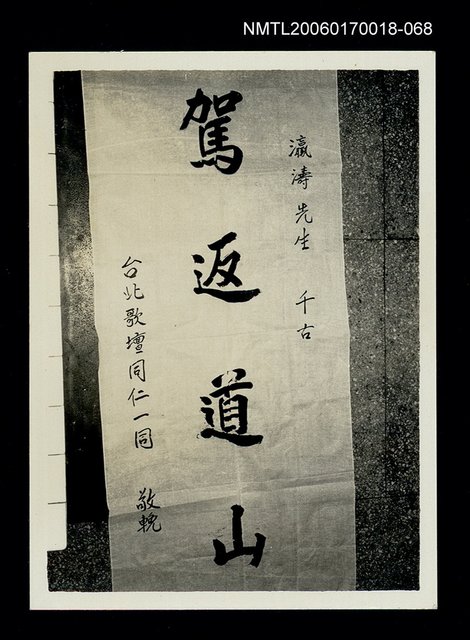 NMTL20060170018-068
瀛濤先生 千古
駕返道山
台北歌壇同仁一同 敬輓